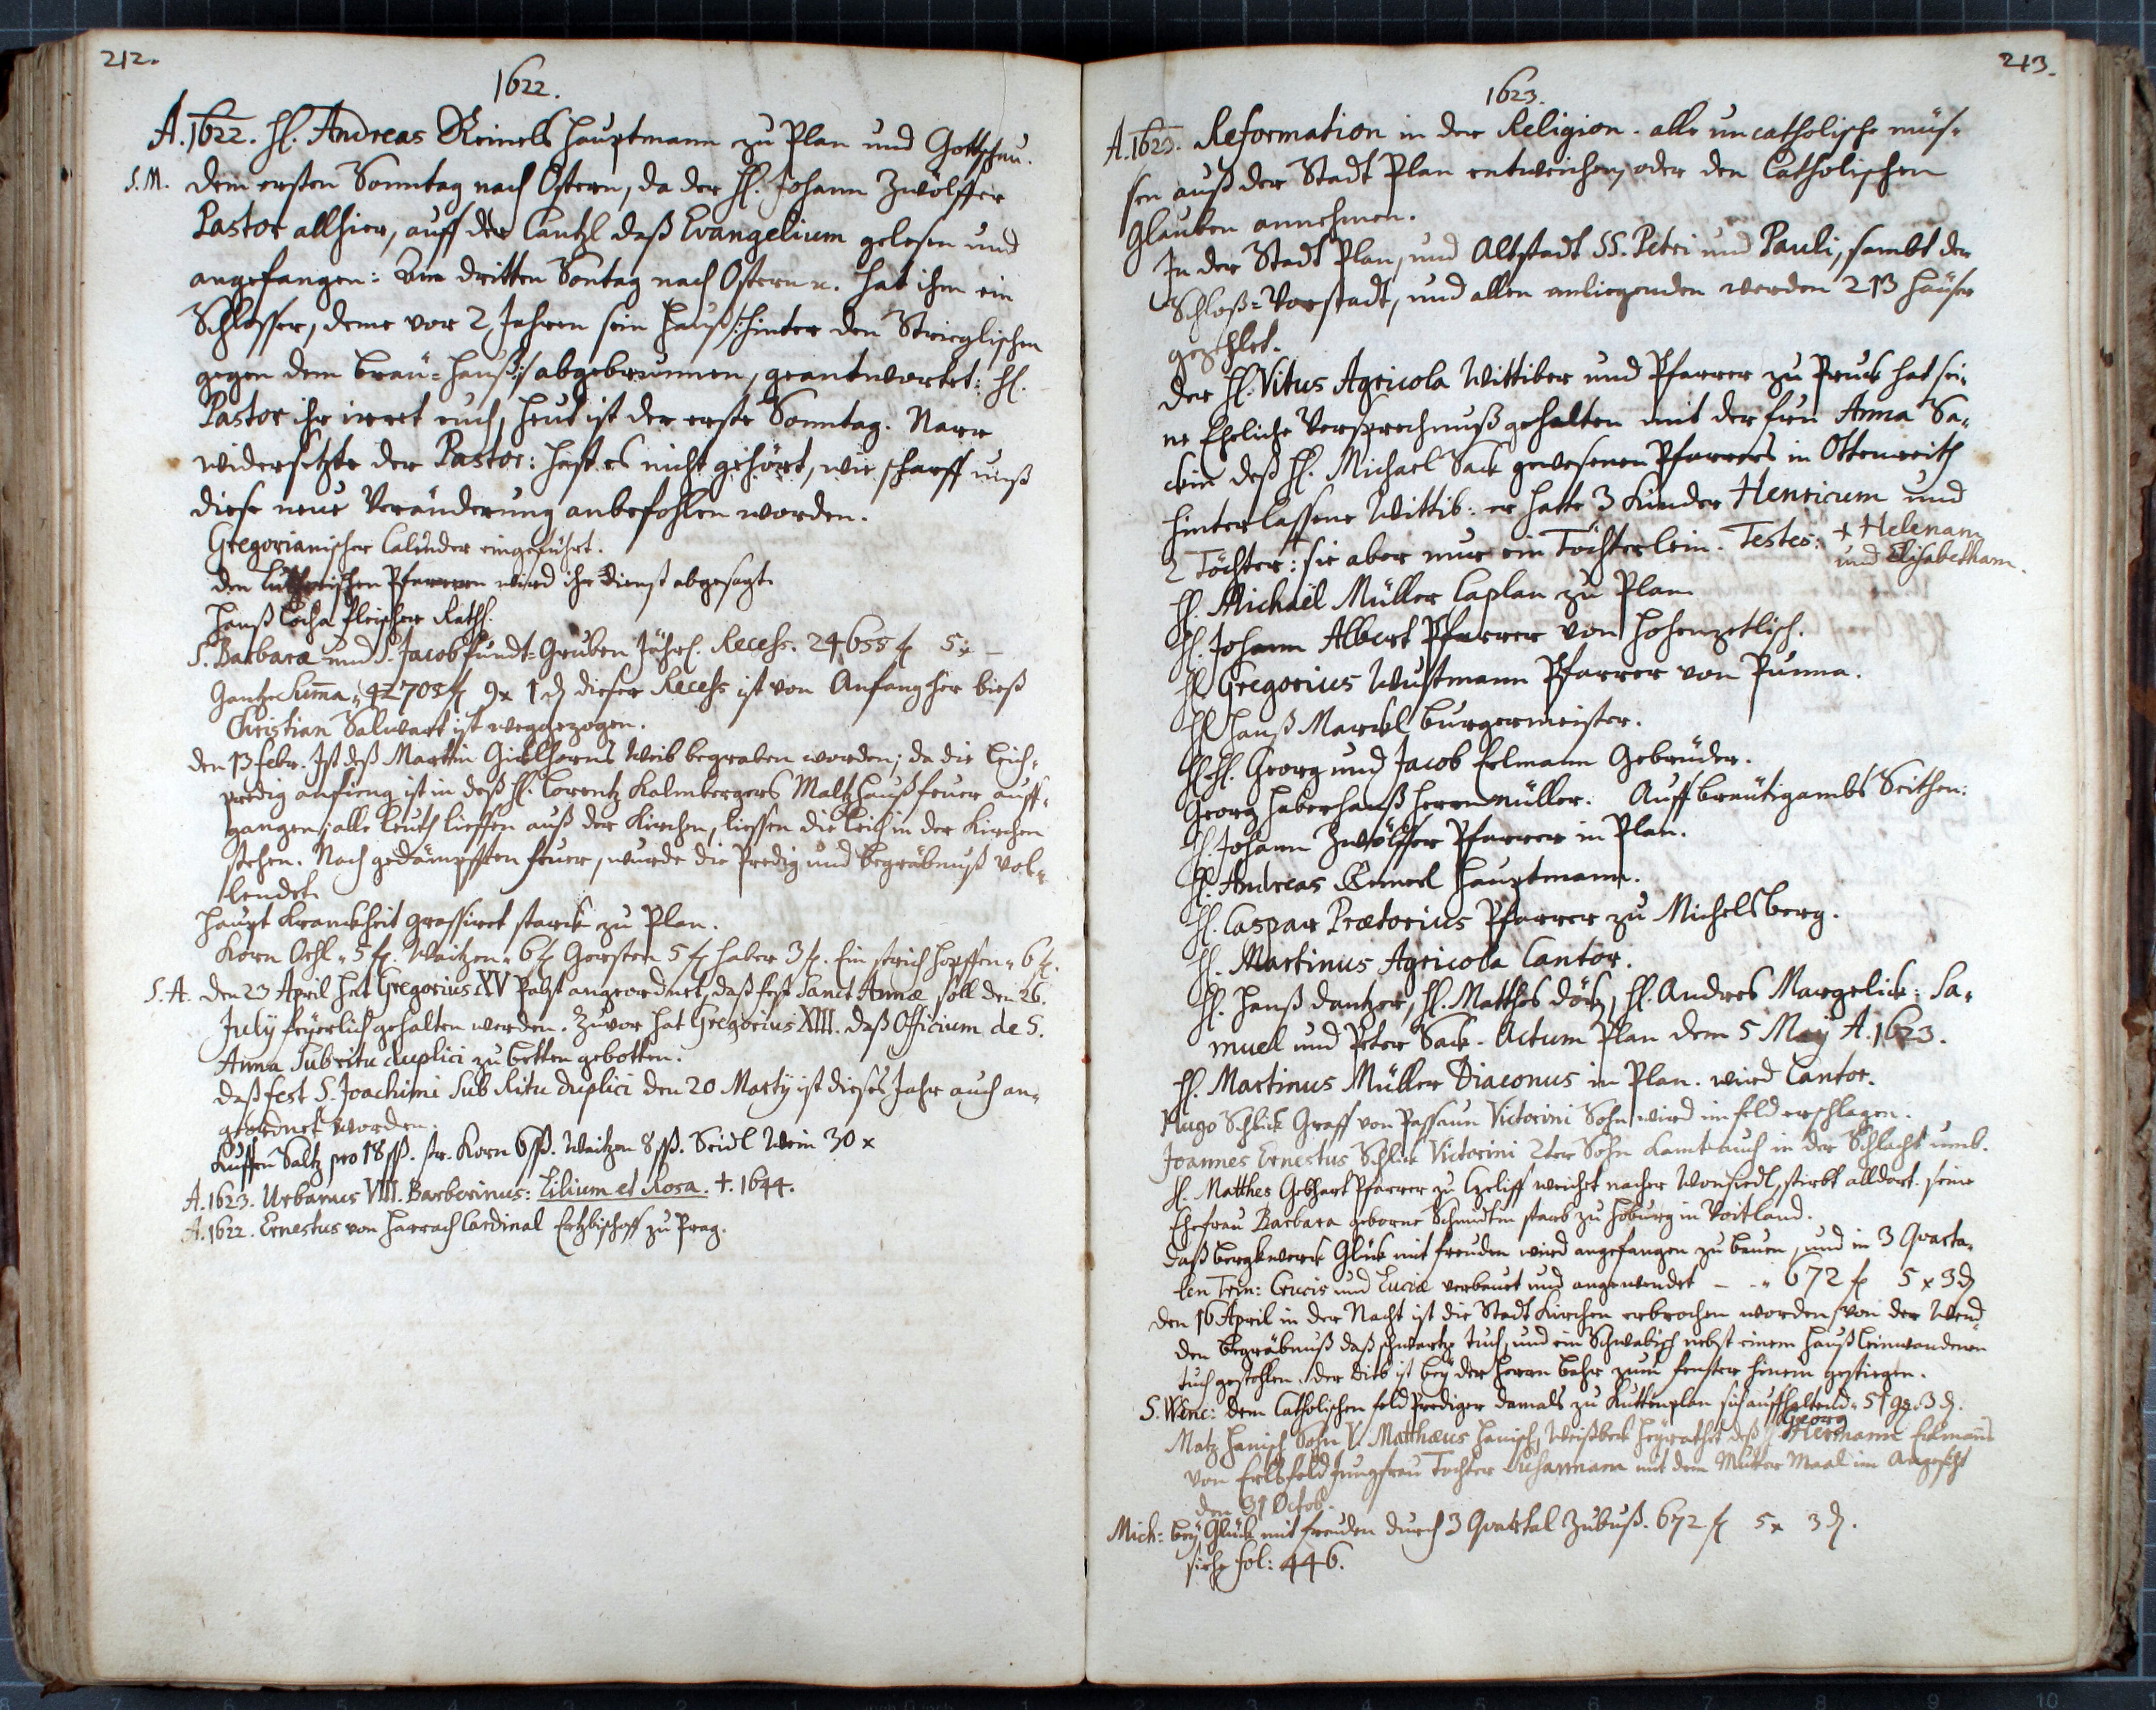 212.
1622.
A. 1622. H. Andreas Reinels Hauptmann zu Plan und Gottschau.
S.M. dem ersten Sonntag nach Ostern, da der H. Johann Zwölffer
Pastor allhier, auff der Cantzl daß Evangelium gelesen und
angefangen: Am dritten Sontag nach Ostern u. hat ihm ein
Schlosser, deme vor 2 Jahren sein Hauß /:hinter den Strieglischen
gegen dem Breu=Hauß:/ abgebrunnen, geantwortet: H.
Pastor ihr irret euch, heut ist der erste Sonntag. Narr
widersetzte der Pastor: hast es nicht gehört, wie scharff unß
diese neue Veränderung anbefohlen worden.
Gregorianischer Calender eingeführt.
den Lutherischen Pfarrern wird ihr Dienst abgesagt.
Hanß Cocha Fleischer Rath.
S. Barbara und S. Jacob fundt=Gruben Jährl. Recess. 24655 f 5 x –
Gantze Suma „ 42705 f 9 x 1 d dieser Recess ist von Anfang her bieß
Christian Salwart ist weggezogen.
den 13 Febr. Ist deß Martin Gieslhorns Weib begraben worden; da die Leich=
predig anfieng ist in deß H. Lorentz Kalmbergers Maltzhauß feuer auff=
gangen; alle Leuth lieffen auß der Kirchen, liessen die Leich in der Kirchen
stehen. Nach gedämpfften feuer, wurde die Predig und Begräbnuß vol=
lendet.
Haupt Kranckheit grassiret starck zu Plan.
Korn Oehl „ 5 f. Waitzen „ 6 f Gersten 5 f haber 3 f. Ein strich Hopffen „ 6 f.
S. A. den 23 April hat Gregorius XV Pabst angeordnet, daß fest Sanct Annæ soll den 26.
July feyerlich gehalten werden. Zuvor hat Gregorius XIII. daß Officium de S.
Anna Sub ritu duplici zu betten gebotten.
daß fest S. Joachimi Sub Ritu duplici den 20 Martij ist dieses Jahr auch an=
geordnet worden.
Kuffen Saltz pro 18 ß. str. Korn 6 ß. Waitzen 8 ß. Seidl Wein 30 x
A. 1623. Urbanus VIII. Barberinus: Lilium et Rosa. †. 1644.
A. 1622. Ernestus von Harrach Cardinal Ertzbischoff zu Prag.
213.
1623.
A. 1623. Reformation in der Religion. alle uncatholische müs=
sen auß der Stadt Plan entweichen, oder den Catholischen
Glauben annehmen.
In der Stadt Plan, und Altstadt SS. Petri und Pauli, sambt der
Schloß=Vorstadt, und allen anliegenden werden 213 Häuser
gezehlet.
der H. Vitus Agricola Wittiber und Pfarrer zu Pruck hat sei=
ne Eheliche Versprechnuß gehalten mit der frau Anna Sa=
ckin deß H. Michael Sack gewesenen Pfarrers in Ottenreith
hinterlassene Wittib: er hatte 3 Kinder Henricum und
2 Töchter: sie aber nur ein Töchterlein. Testes: + Helenam
und Elisabetham.
H. Michaël Müller Caplan zu Plan
H. Johann Albert Pfarrer von Hohenzetlisch.
H. Gregorius Wustmann Pfarrer von Punna.
H. Hanß Marckl Burgermeister.
H. H. Georg und Jacob Erlmann Gebrüder.
Georg Haberhauß Herrnmüller. Auff Bräutigambs Seithen:
H. Johann Zwölffer Pfarrer in Plan.
H. Andreas Reinerl Hauptmann.
H. Caspar Prætorius Pfarrer zu Michelsberg.
H. Martinus Agricola Cantor.
H. Hanß Dantzer, H. Matthes Döck, H. Andres Margelick: Sa=
muel und Peter Sack. Actum Plan dem 5 May A. 1623.
H. Martinus Müller Diaconus in Plan. wird Cantor.
Hugo Schlick Graff von Passaun Victorini Sohn wird im feld erschlagen.
Joannes Ernestus Schlick Victorini 2ter Sohn kamt auch in der Schlacht umb.
H. Matthes Gebhart Pfarrer zu Czeliff weichet nacher Wonsiedl, stirbt alldort. seine
Ehefrau Barbara geborne Schmidtin starb zu Hoburg in Voitland.
daß Bergkwerck Glück mit freuden wird angefangen zu bauen, und in 3 Quarta=
len Trin: Crucis und Luciæ verbauet und angewendet – – „ 672 f 5 x 3 d
den 16 April in der Nacht ist die Stadt Kirchen erbrochen worden, von der Wend
den Begräbnuß daß schwartze tuch, und ein Schwabisch nebst einem Hauß Leinwandenen
tuch gestohlen. der Dieb ist bey der Herrn Bahr zum fenster hinein gestiegen.
S. Wenc: dem Catholischen feld Prediger damals zu Kuttenplan sich auffhaltend „ 51 gr. 3 d.
Georg
Matz Hanisch Sohn V. Matthæus Hanisch, Weißbeck heyrathet deß Hermann Erlmans
von Erlsfeld Jungfrau Tochter Susannam mit dem Mutter Maal im Angesicht
den 31 Octob.
Mich: bey Glück mit freuden durch 3 Quartal Zubuß. 672 f 5 x 3 d.
siehe fol: 446.